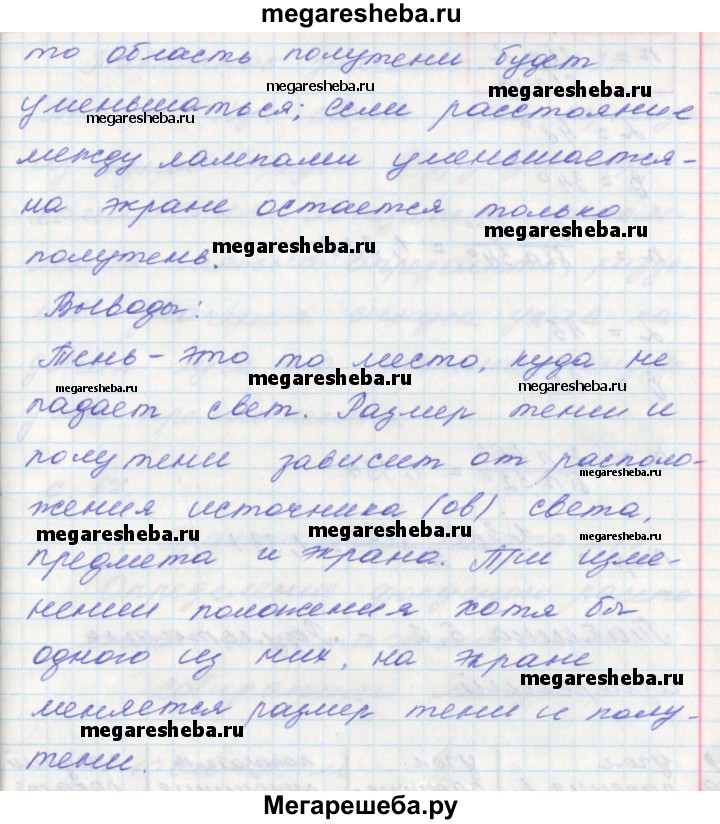 megaresheba.ru
то область полутени будет
megaresheba.ru
megaresheba.ru
уменьшаться; если расстояние
megaresheba.ru
между лампами уменьшается-
на экране остается только
megaresheba.ru
полутень.
megaresheba.ru
Выводы:
Тень - это то место, куда не
megaresheba.ru
megaresheba.ru
megaresheba.ru
падает свет. Размер тени и
полутени зависит от располо-
жения источника (ов) света,
megaresheba.ru
megaresheba.ru
megaresheba.ru
предмета и экрана. При изме-
нении положения хотя бы
одного из них, на экране
megaresheba.ru
меняется размер тени и полу-
megaresheba.ru
тени.
Мегарешеба.ру